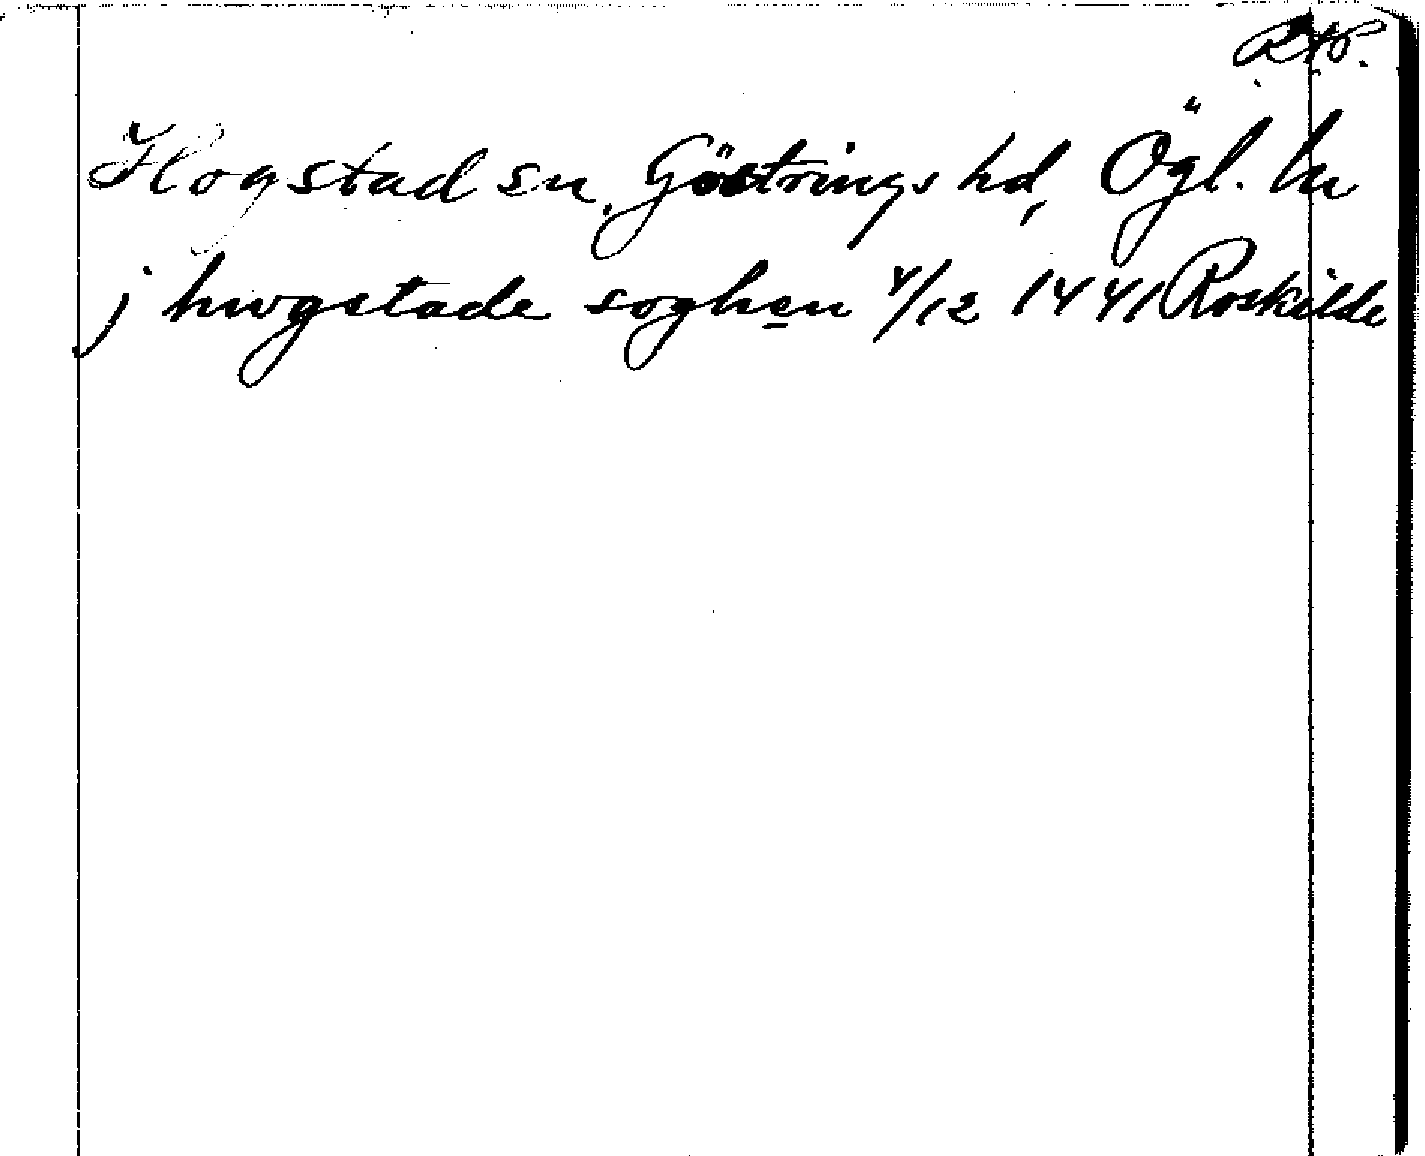 Hogstad sn, Göstrings hd, Ögl. ln
j hwgstade soghen 4/12 1441 Roskilde